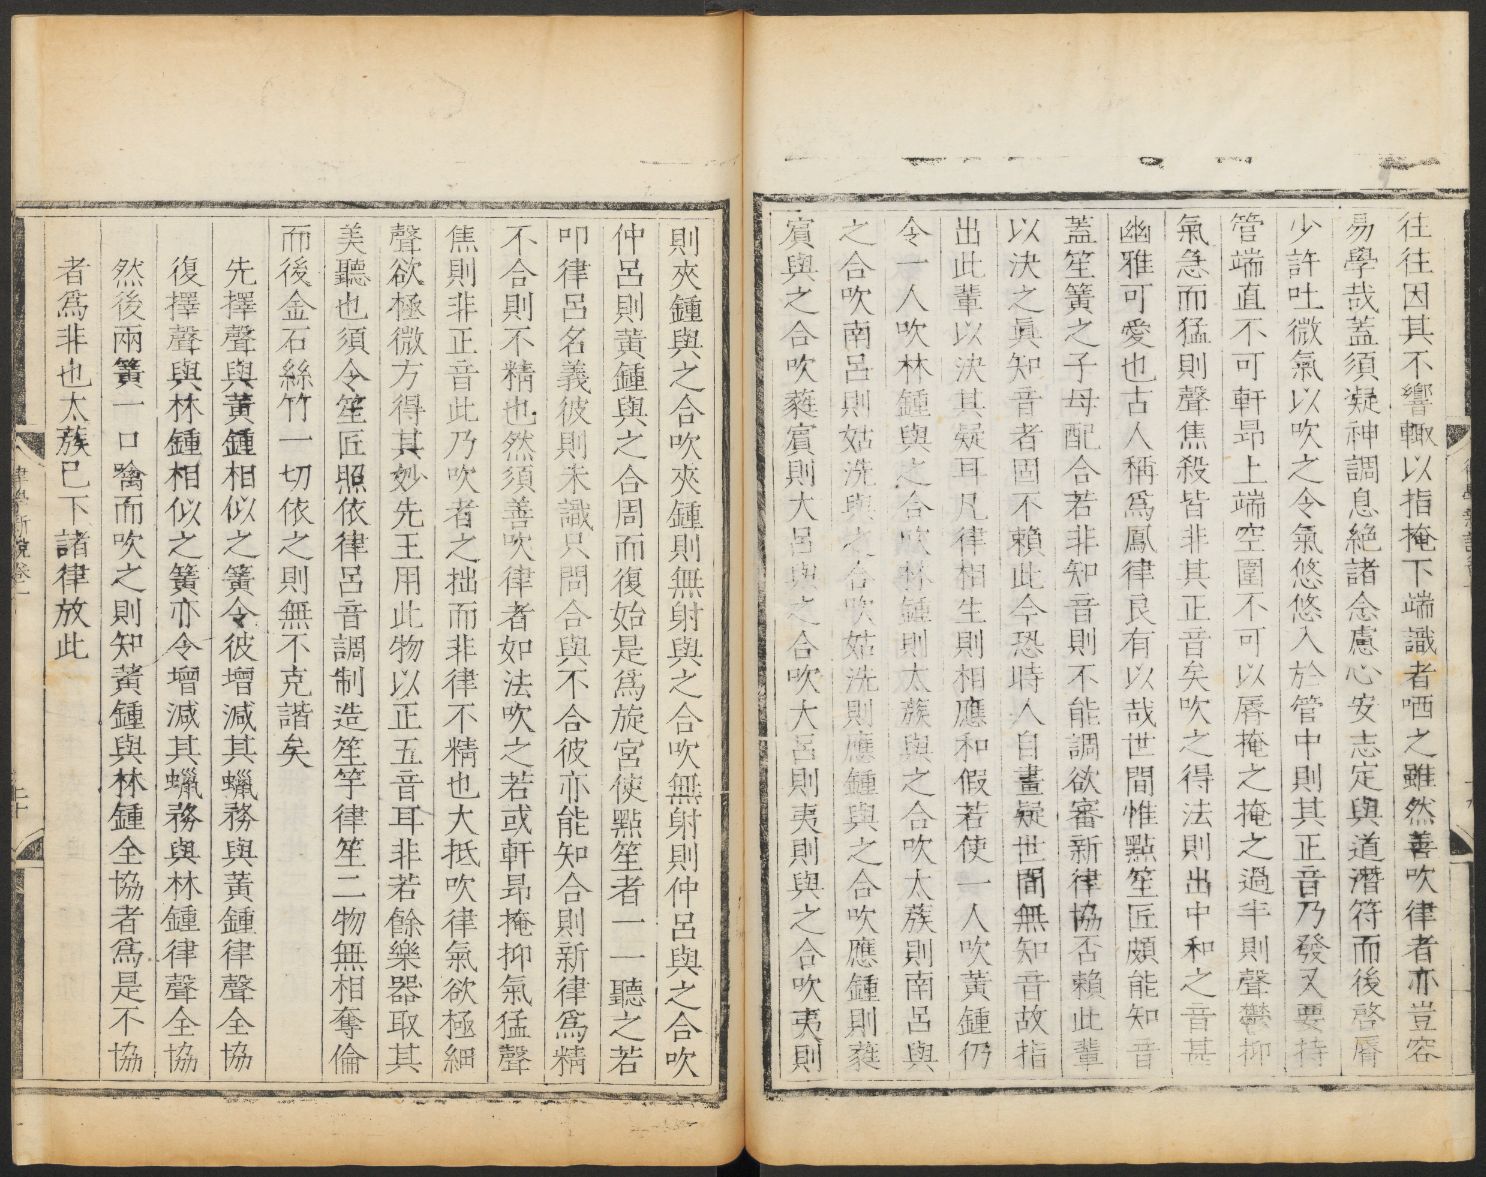 往往因其不響輙以指掩下端識者哂之雖然善吹律者亦豈容
易學哉蓋須凝神調息絶諸念慮心安志定與道潛符而後啓脣
少許吐微氣以吹之令氣悠悠入於管中則其正音乃發又要持
管端直不可軒昻上端空圍不可以脣掩之掩之過半則聲鬱抑
氣急而猛則聲焦殺皆非其正音矣吹之得法則出中和之音甚
幽雅可愛也古人稱爲鳳律良有以哉世間惟點笙匠頗能知音
蓋笙簧之子母配合若非知音則不能調欲審新律協否賴此輩
以決之眞知音者固不賴此今恐時人自畫疑世間無知音故指
出此輩以決其疑耳凡律相生則相應和假若使一人吹黃鍾仍
令一人吹林鍾與之合吹林鍾則太蔟與之合吹太蔟則南呂與
之合吹南呂則姑洗與之合吹姑洗則應鍾與之合吹應鍾則蕤
賓與之合吹蕤賓則大呂與之合吹大呂則夷則與之合吹夷則
則夾鍾與之合吹夾鍾則無射與之合吹無射則仲呂與之合吹
仲呂則黃鍾與之合周而復始是爲旋宮使點笙者一一聽之若
叩律呂名義彼則未識只問合與不合彼亦能知合則新律爲精
不合則不精也然須善吹律者如法吹之若或軒昻掩抑氣猛聲
焦則非正音此乃吹者之拙而非律不精也大抵吹律氣欲極細
聲欲極微方得其妙先王用此物以正五音耳非若餘樂器取其
美聽也須令笙匠照依律呂音調制造笙竽律笙二物無相奪倫
而後金石絲竹一切依之則無不克諧矣
先擇聲與黃鍾相似之簧令彼增減其蠟務與黃鍾律聲全協
復擇聲與林鍾相似之簧亦令增減其蠟務與林鍾律聲全協
然後兩簧一口噙而吹之則知黃鍾與林鍾全協者爲是不協
者爲非也太蔟已下諸律放此
律學新說卷一
二十